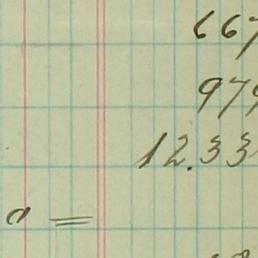 667
979
12.33
a =